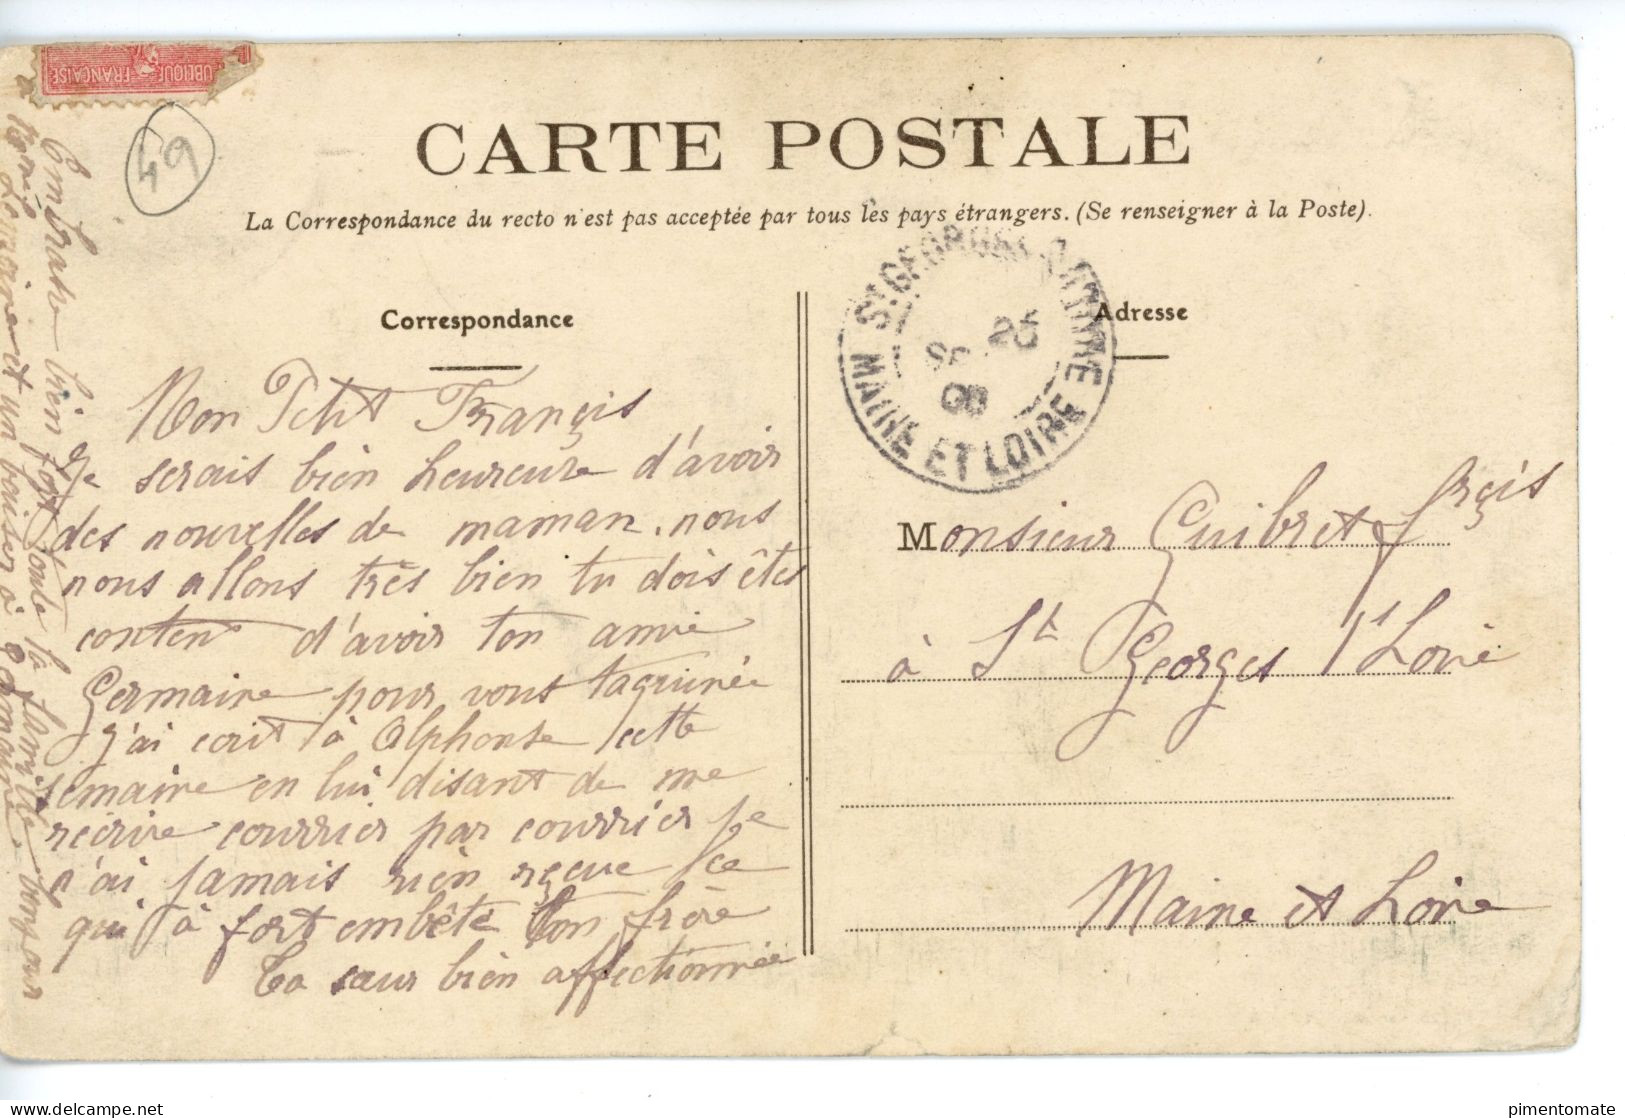 UBLIQUE FRANÇAISE
49
CARTE POSTALE
La Correspondance du recto n'est pas acceptée par tous les pays étrangers. (Se renseigner à la Poste).
Correspondance
Adresse
ST GEORGES S LOIRE
MAINE ET LOIRE
25
08
Mon Petit François
Je serais bien heureuse d'avoir
des nouvelles de maman. nous
nous allons très bien tu dois êtes
content d'avoir ton amie
Germaine pour vous taquinée
j'ai écrit à Alphonse cette
semaine en lui disant de me
réécrire courrier par courrier je
n'ai jamais rien reçue ce
qui à fort embêté ton frère
Ta sœur bien affectionnée
Embrasse bien fort toute la famille bonjour
à tonie Lemoine et un baiser à Germaine
Monsieur Guibret frçis
à St Georges s Loire
Maine et Loire
pimentomate